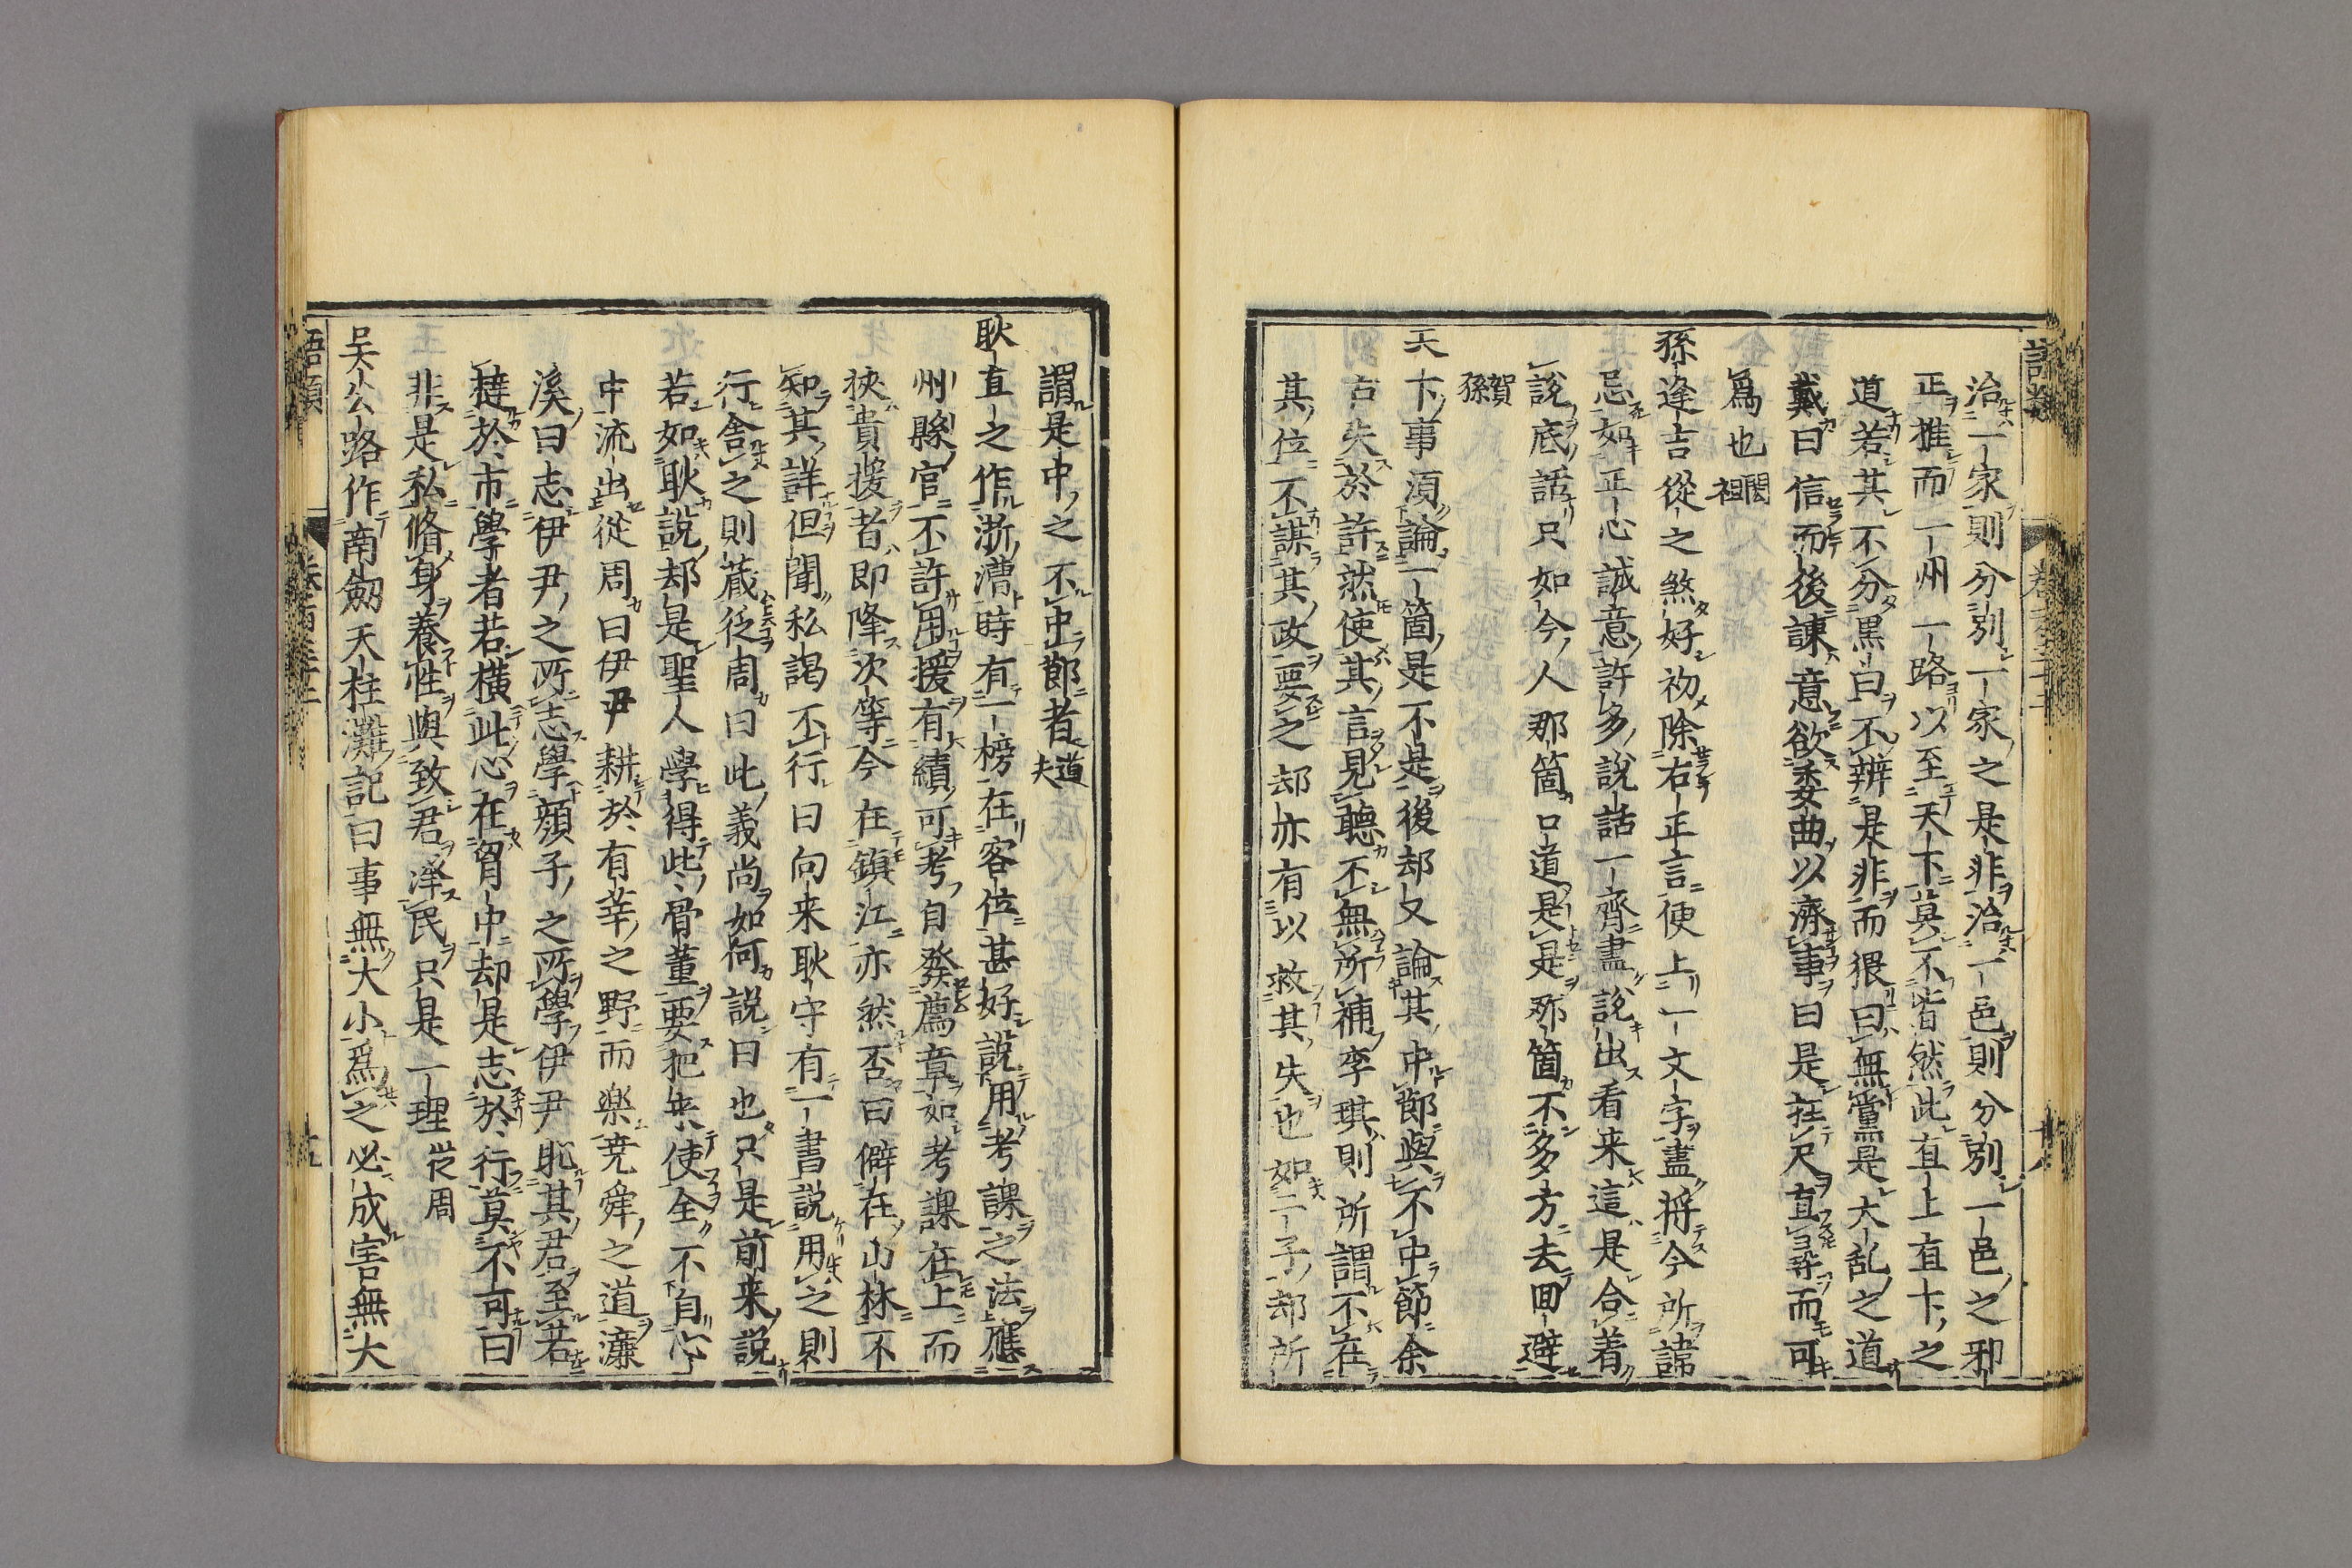 治一家則分別一家之是非治一邑則分別一邑之邪
正推而一州一路以至天下莫不皆然此直上直下之
道若其不分黒白不辨是非而猥曰無黨是大乱之道
戴曰信而後諫意欲委曲以濟事曰是枉尺直尋而可
爲也閎祖
孫逢吉從之煞好初除右正言便上一文字盡将今所諱
忌如正心誠意許多說話一齊盡說出看来這是合着
說底話只如今人那箇口道是是那箇不多方去回避
賀孫
天下事須論一箇是不是後却又論其中節與不中節余
古失於許然使其言見聽不無所補李琪則所謂不在
其位不謀其政要之却亦有以救其失也如二子却所
謂是中之不中節者道夫
耿直之作浙漕時有一榜在客位甚好說用考課之法應
州縣官不許用援有績可考自發薦章如考課在上而
挾貴援者即降次等今在鎮江亦然否曰僻在山林不
知其詳但聞私謁不行曰向来耿守有一書說用之則
行舎之則蔵從周曰此義尚如何說曰也只是前来說
若如耿說却是聖人學得此骨董要把来使全不自心
中流出從周曰伊尹耕於有莘之野而楽尭舜之道濂
溪曰志伊尹之所志學顔子之所學伊尹恥其君至若
撻於市學者若横此心在胷中却是志於行莫不可曰
非是私脩身養性與致君澤民只是一理從周
吴公路作南劔天柱灘記曰事無大小爲之必成害無大